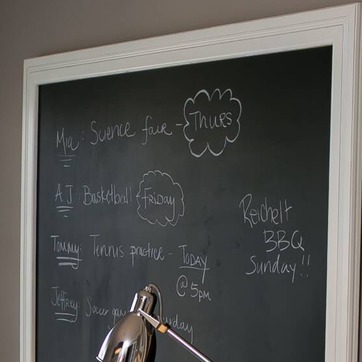 Mia: Science fair - Thurs
AJ: Basketball Friday
Tommy: Tennis practice - Today
@ 5pm
Jeffrey: Soccer
Reichelt
BBQ
Sunday!!